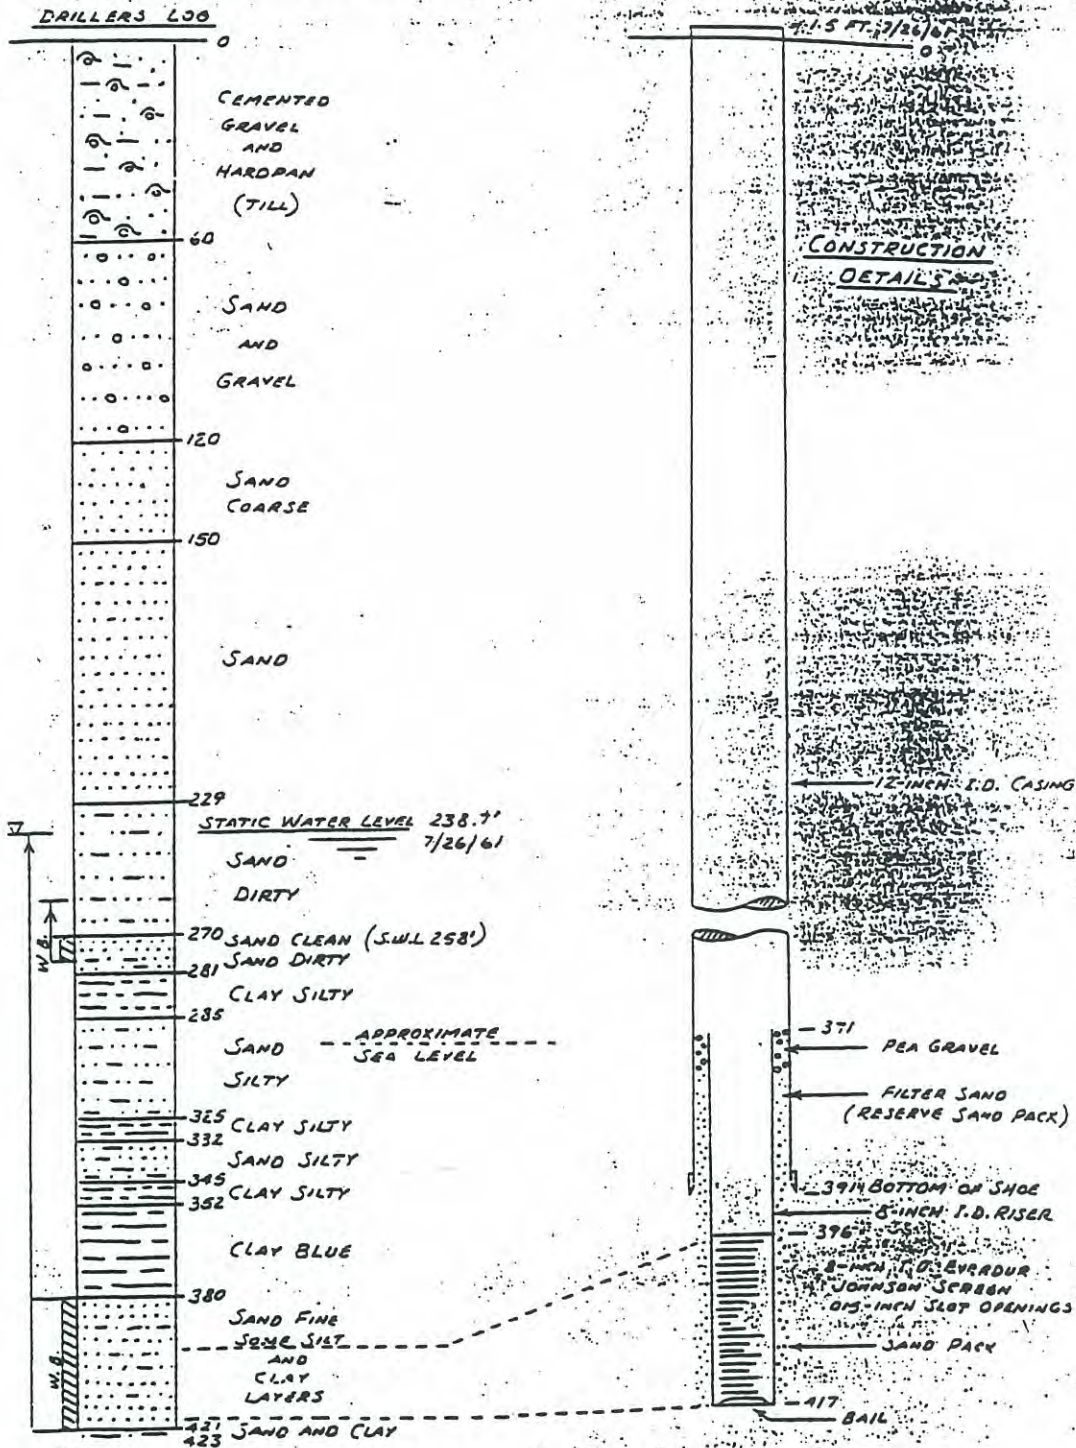 DRILLERS LOG
0
CEMENTED
GRAVEL
AND
HARDPAN
(TILL)
60
SAND
AND
GRAVEL
120
SAND
COARSE
150
SAND
229
STATIC WATER LEVEL 238.
7/26/61
SAND
DIRTY
W.B.
270 SAND CLEAN (S.W.L 258')
SAND DIRTY
281
CLAY SILTY
285
APPROXIMATE
SEA LEVEL
SAND
SILTY
325 CLAY SILTY
332
SAND SILTY
345
CLAY SILTY
352
CLAY BLUE
380
SAND FINE
SOME SILT
AND
CLAY
LAYERS
W.B.
421
423 SAND AND CLAY
1.5 FT. 7/26/61
0
CONSTRUCTION
DETAILS
12-INCH I.D. CASING
371
PEA GRAVEL
FILTER SAND
(RESERVE SAND PACK)
391 BOTTOM OF SHOE
8-INCH I.D. RISER
396
8-INCH I.D. EVERDUR
JOHNSON SCREEN
015-INCH SLOT OPENINGS
SAND PACK
417
BAIL